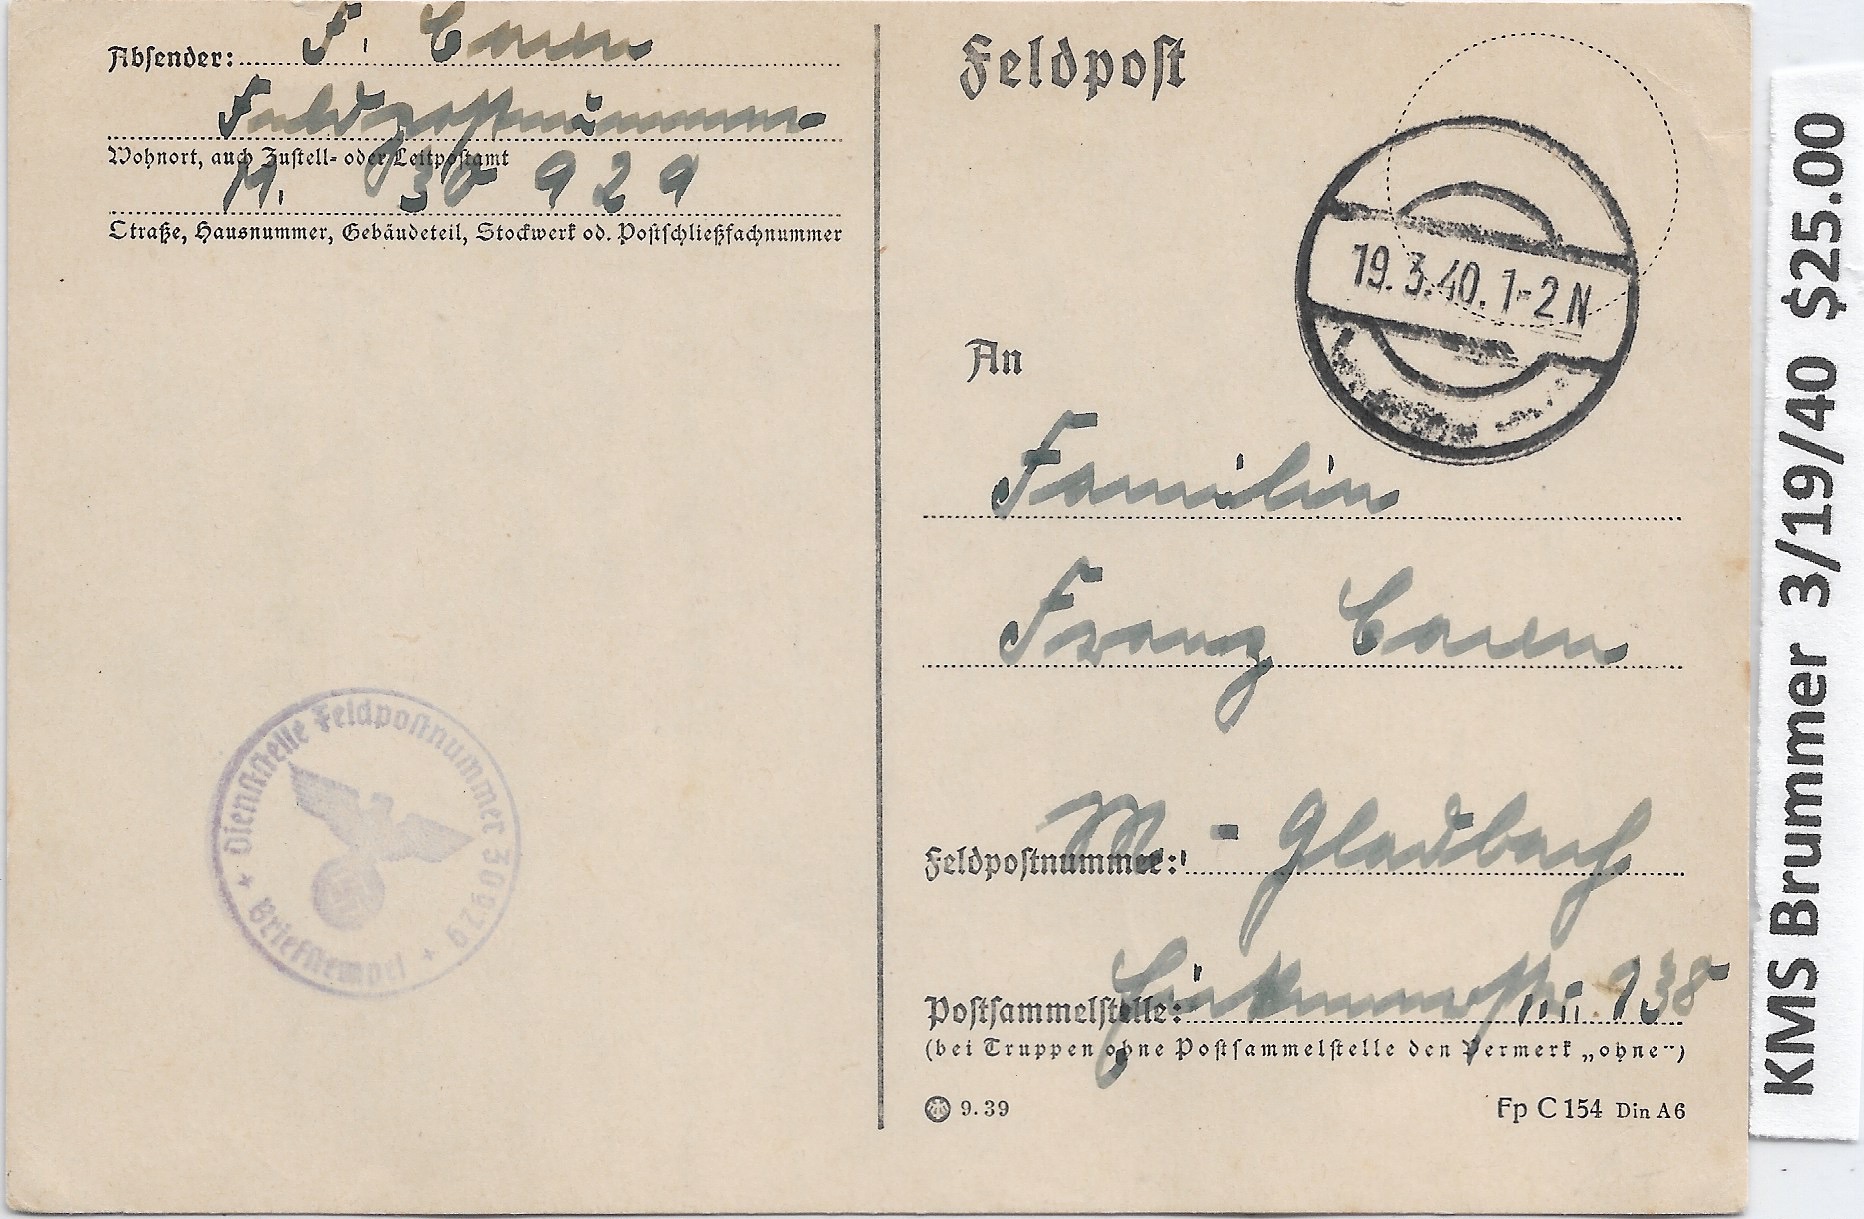 Absender: F. Coenen
Feldpostnummer
Wohnort, auch Zustell- oder Leitpostamt
N. 30 929
Straße, Hausnummer, Gebäudeteil, Stockwerk od. Postschließfachnummer
Dienststelle Feldpostnummer 30929
Briefstempel
Feldpost
19.3.40.1-2N
An
Familie
Franz Coenen
M-Gladbach
Feldpostnummer:
138
Postsammelstelle:
(bei Truppen ohne Postsammelstelle den Vermerk „ohne")
9.39
Fp C 154 Din A6
KMS Brummer 3/19/40 $25.00